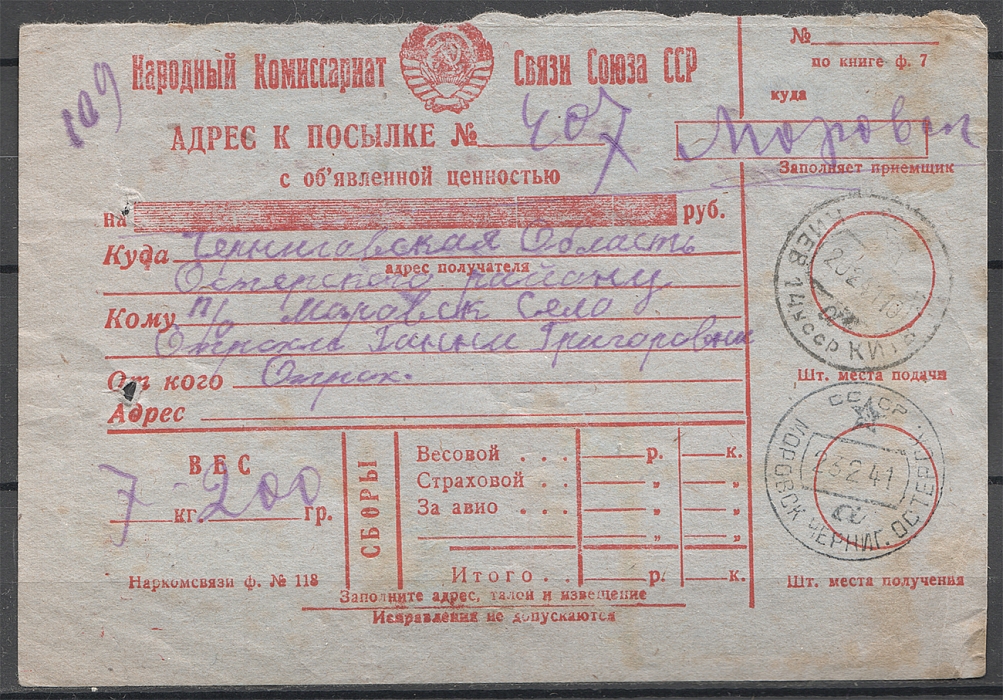 109
Народный Комиссариат Связи Союза ССР
АДРЕС К ПОСЫЛКЕ № 407
с об'явленной ценностью
на руб.
Куда Черниговская Область
адрес получателя
Остерского району
Кому п/о Моровск Село
Ганни Григоровни
От кого
Адрес
ВЕС
7 кг. 200 гр.
СБОРЫ
Весовой . . . р. к.
Страховой . . „ „
За авио . . . „ „
„ „
Итого . . р. к.
Наркомсвязи ф. № 118
Заполните адрес, талон и извещение
Исправления не допускаются
№
по книге ф. 7
куда
Моровск
Заполняет приемщик
КИЕВ 14 УССР КИЇВ
Шт. места подачи
СССР
МОРОВСК ЧЕРНИГ. ОСТЕРСК.
23 2 41
Шт. места получения